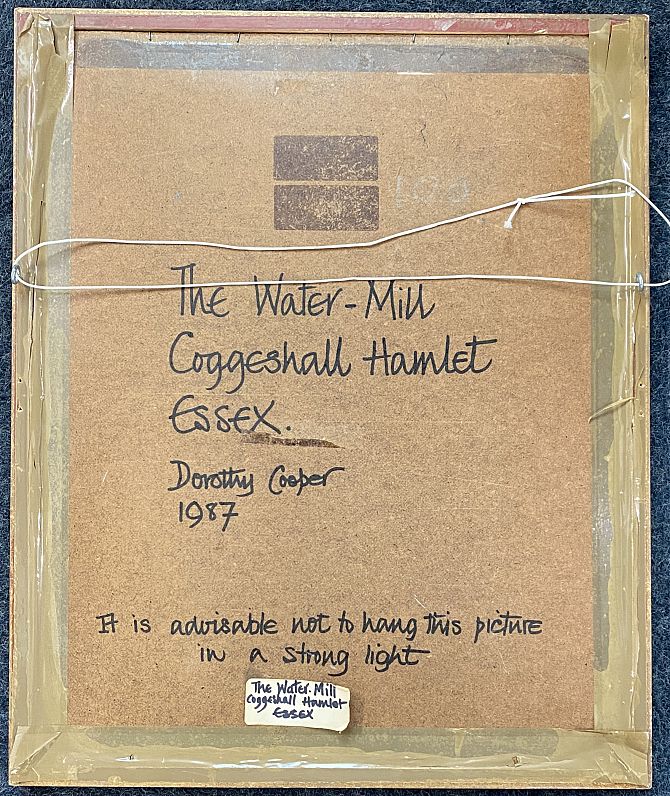 100
The Water-Mill
Coggeshall Hamlet
Essex.
Dorothy Cooper
1987
It is advisable not to hang this picture
in a strong light
The Water-Mill
Coggeshall Hamlet
ESSEX